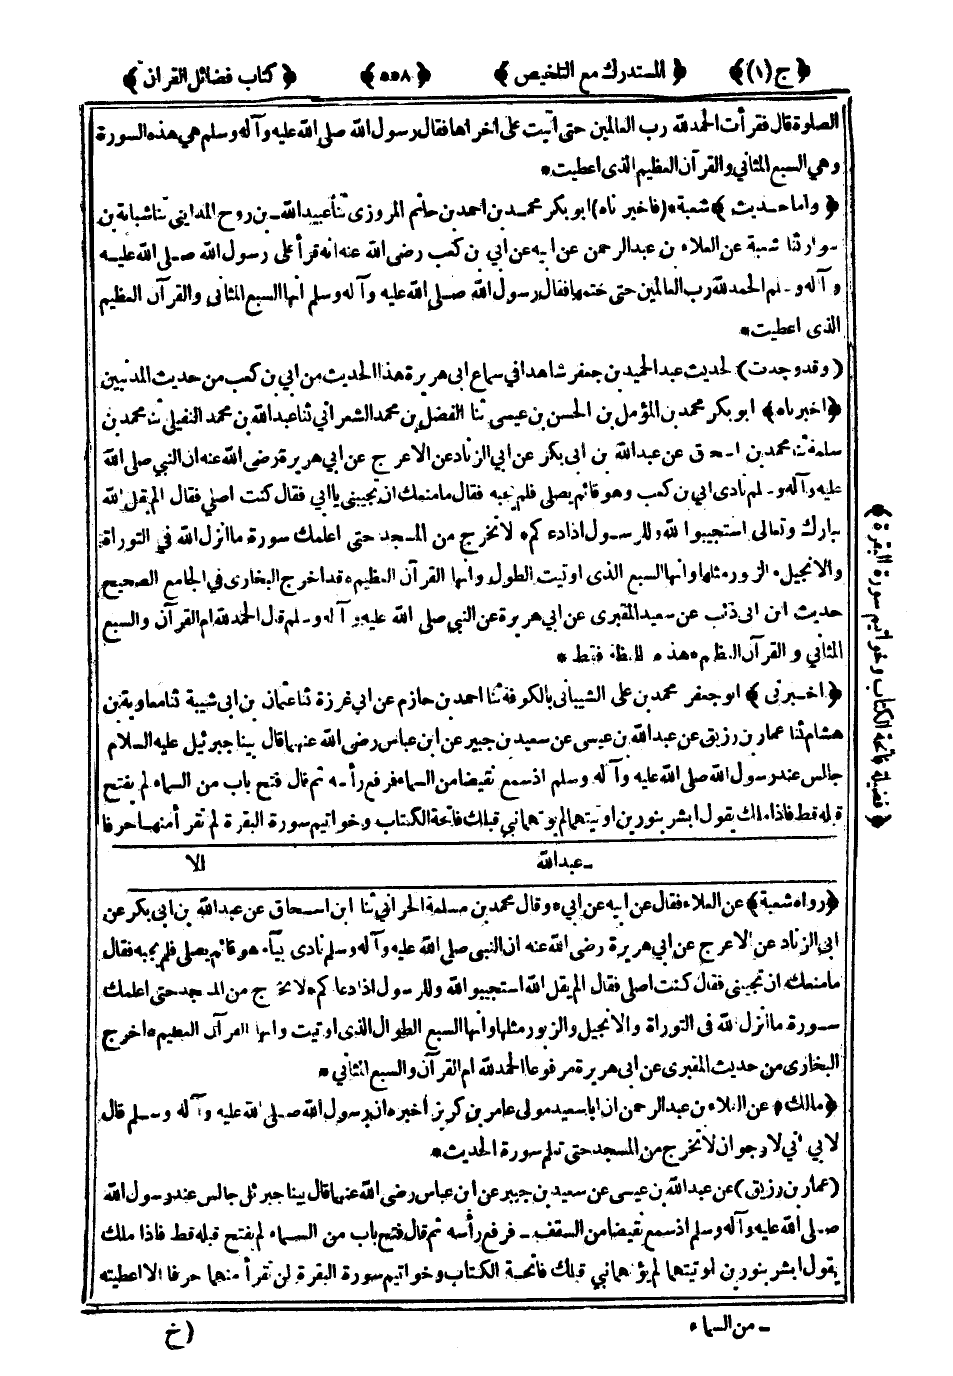 ﴿ ج (١) ﴾ ﴿ المستدرك مع التلخيص ﴾ ﴿ ٥٥٨ ﴾ ﴿ كتاب فضائل القرآن ﴾
الصلوة قال فقرأت الحمد لله رب العالمين حتى اتيت على اخراها فقال رسول الله صلى الله عليه وآله وسلم هي هذه السورة
وهي السبع المثاني والقرآن العظيم الذى اعطيت *
﴿ واما حديث ﴾ شعبة * (فاخبرناه) ابو بكر محمد بن احمد بن حاتم المروزى ثنا عبيد الله ـ بن روح المدايني ثنا شبابة بن
سوار ثنا شعبة عن العلاء بن عبد الرحمن عن ابيه عن ابي بن كعب رضى الله عنه انه قرأ على رسول الله صلى الله عليه
وآله وسلم الحمد لله رب العالمين حتى ختمها فقال رسول الله صلى الله عليه وآله وسلم انها السبع المثانى والقرآن العظيم
الذى اعطيت *
(وقد وجدت) لحديث عبد الحميد بن جعفر شاهدا في سماع ابى هريرة هذا الحديث من ابي بن كعب من حديث المدنيين
﴿ اخبرناه ﴾ ابو بكر محمد بن المؤمل بن الحسن بن عيسى ثنا الفضل بن محمد الشعراني ثنا عبد الله بن محمد النفيلى ثنا محمد بن
سلمة ثنا محمد بن اسحق عن عبد الله بن ابى بكر عن ابي الزناد عن الاعرج عن ابي هريرة رضى الله عنه ان النبي صلى الله
عليه وآله وسلم نادى ابي بن كعب وهو قائم يصلى فلم يجبه فقال ما منعك ان تجيبنى يا ابي فقال كنت اصلى فقال الم يقل الله
تبارك وتعالى استجيبوا لله وللرسول اذا دعاكم * لا تخرج من المسجد حتى اعلمك سورة ما انزل الله في التوراة
والانجيل والزبور مثلها وانها السبع الذى اوتيت الطول وانها القرآن العظيم * قد اخرج البخارى في الجامع الصحيح
حديث ابن ابى ذئب عن سعيد المقبرى عن ابي هريرة عن النبي صلى الله عليه وآله وسلم قال الحمد لله ام القرآن والسبع
المثاني والقرآن العظيم * هذه اللفظة فقط *
﴿ اخبرنى ﴾ ابو جعفر محمد بن على الشيبانى بالكوفة ثنا احمد بن حازم عن ابي غرزة ثنا عثمان بن ابى شيبة ثنا معاوية بن
هشام ثنا عمار بن رزيق عن عبد الله بن عيسى عن سعيد بن جبير عن ابن عباس رضى الله عنهما قال بينا جبرئيل عليه السلام
جالس عند رسول الله صلى الله عليه وآله وسلم اذ سمع نقيضا من السماء فرفع رأسه ثم قال فتح باب من السماء لم يفتح
قبله قط فاذا ملك يقول ابشر بنورين اوتيتهما لم يؤتهما نبي قبلك فاتحة الكتاب وخواتيم سورة البقرة لم تقرأ منهما حرفا
ـ عبد الله الا
﴿ رواه شعبة ﴾ عن العلاء فقال عن ابيه عن ابي * وقال محمد بن مسلمة الحرانى ثنا ابن اسحاق عن عبد الله بن ابى بكر عن
ابى الزناد عن الاعرج عن ابي هريرة رضى الله عنه ان النبي صلى الله عليه وآله وسلم نادى ابيا وهو قائم يصلى فلم يجبه فقال
ما منعك ان تجيبنى فقال كنت اصلى فقال الم يقل الله استجيبوا لله وللرسول اذا دعاكم * لا تخرج من المسجد حتى اعلمك
سورة ما انزل الله فى التوراة والانجيل والزبور مثلها وانها السبع الطوال الذى اوتيت وانها القرآن العظيم * اخرج
البخارى من حديث المقبرى عن ابى هريرة مرفوعا الحمد لله ام القرآن والسبع المثاني *
﴿ مالك ﴾ عن العلاء بن عبد الرحمن ان ابا سعيد مولى عامر بن كريز اخبره ان رسول الله صلى الله عليه وآله وسلم قال
لابي اني لارجو ان لا تخرج من المسجد حتى تعلم سورة الحديث *
(عمار بن رزيق) عن عبد الله بن عيسى عن سعيد بن جبير عن ابن عباس رضى الله عنهما قال بينا جبرئل جالس عند رسول الله
صلى الله عليه وآله وسلم اذ سمع نقيضا من السقف ـ فرفع رأسه ثم قال فتح باب من السماء لم يفتح قبله قط فاذا ملك
يقول ابشر بنورين اوتيتهما لم يؤتهما نبي قبلك فاتحة الكتاب وخواتيم سورة البقرة لن تقرأ منهما حرفا الا اعطيته
ـ من السماء (خ
﴿ فضيلة فاتحة الكتاب وخواتيم سورة البقرة ﴾